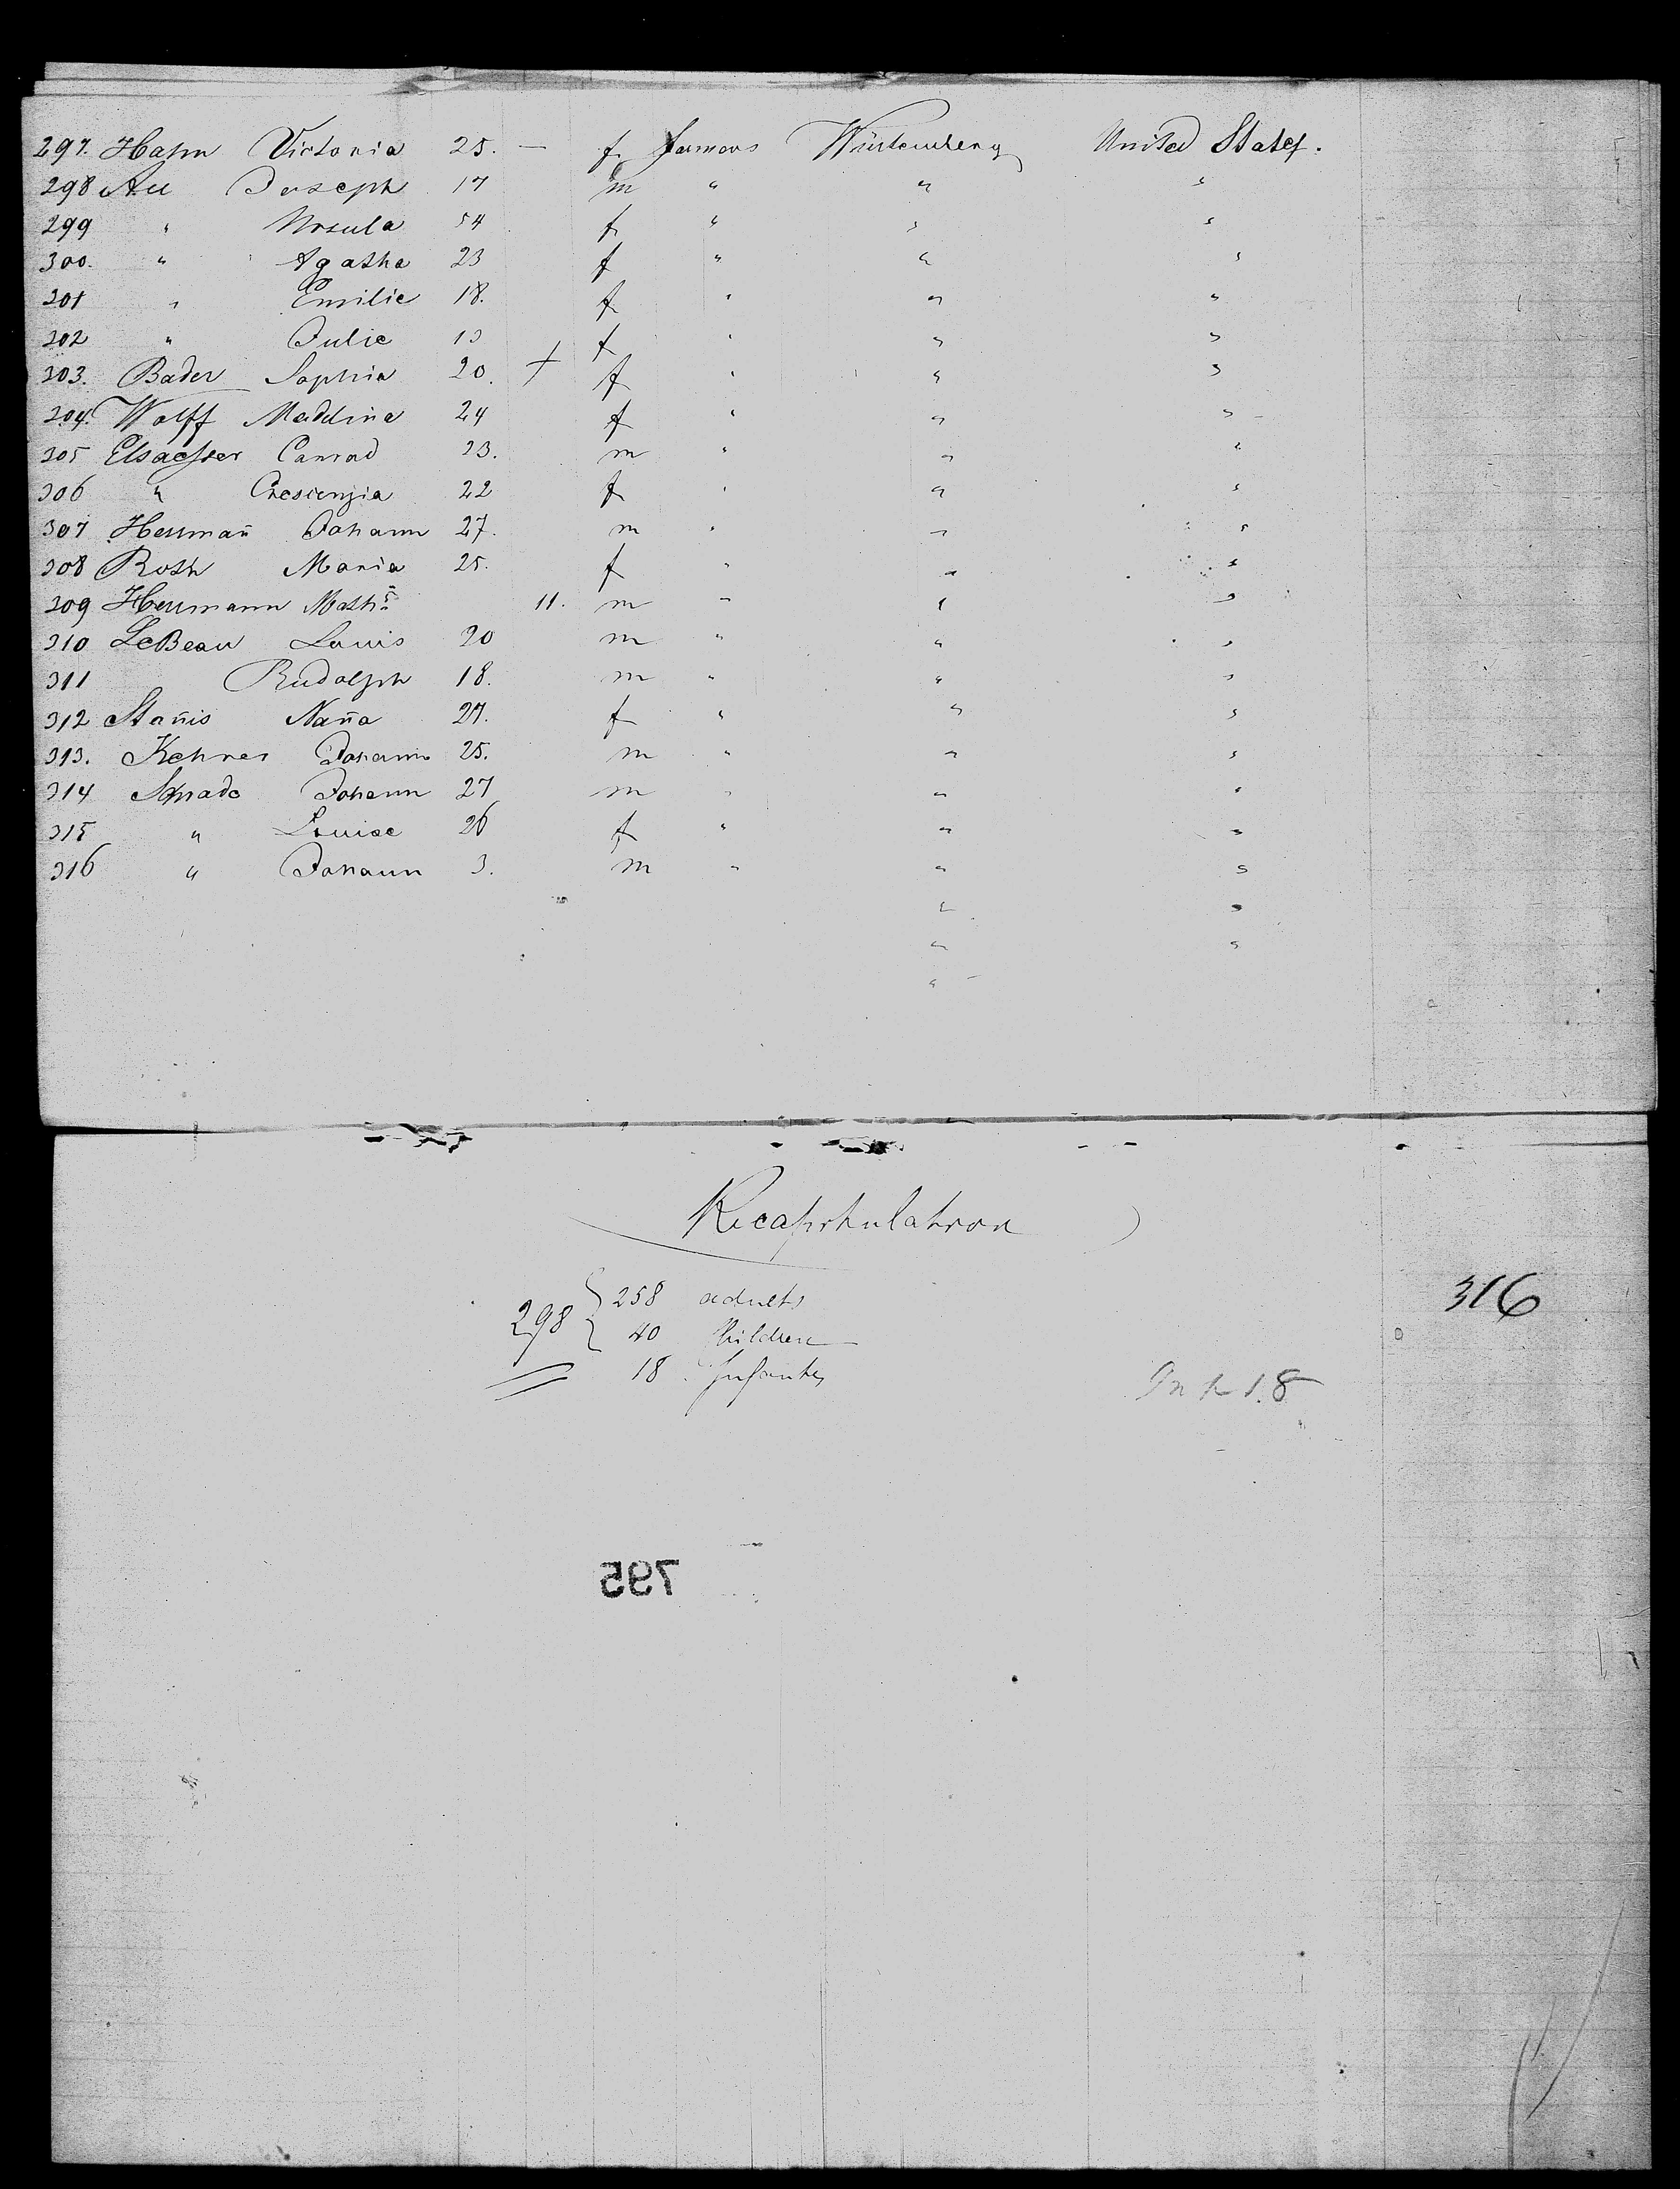 297. Hahn Victoria 25. — f farmers Würtemberg United States.
298 Au Joseph 17 m " " "
299 " Ursula 54 f " " "
300. " Agatha 23 f " " "
301 " Emilie 18. f " " "
302 " Julie 13 f " " "
303. Bader Sophia 20. + f " " "
304. Wolff Madelina 24 f " " "
305 Elsaesser Conrad 23. m " " "
306 " Cresienzia 22 f " " "
307 Hermañ Johann 27. m " " "
308 Roth Maria 25. f " " "
309 Hermann Maths 11. m " " "
310 LeBeau Louis 20 m " " "
311 Rudolph 18. m " " "
312 Stañis Naña 27. f " " "
313. Kehrer Johann 25. m " " "
314 Johann 27 m " " "
315 " Louise 26 f " " "
316 " Johann 3. m " " "
" "
" "
"
Recapitulation
316
298 { 258 adults
40 Children
18 Infants
795